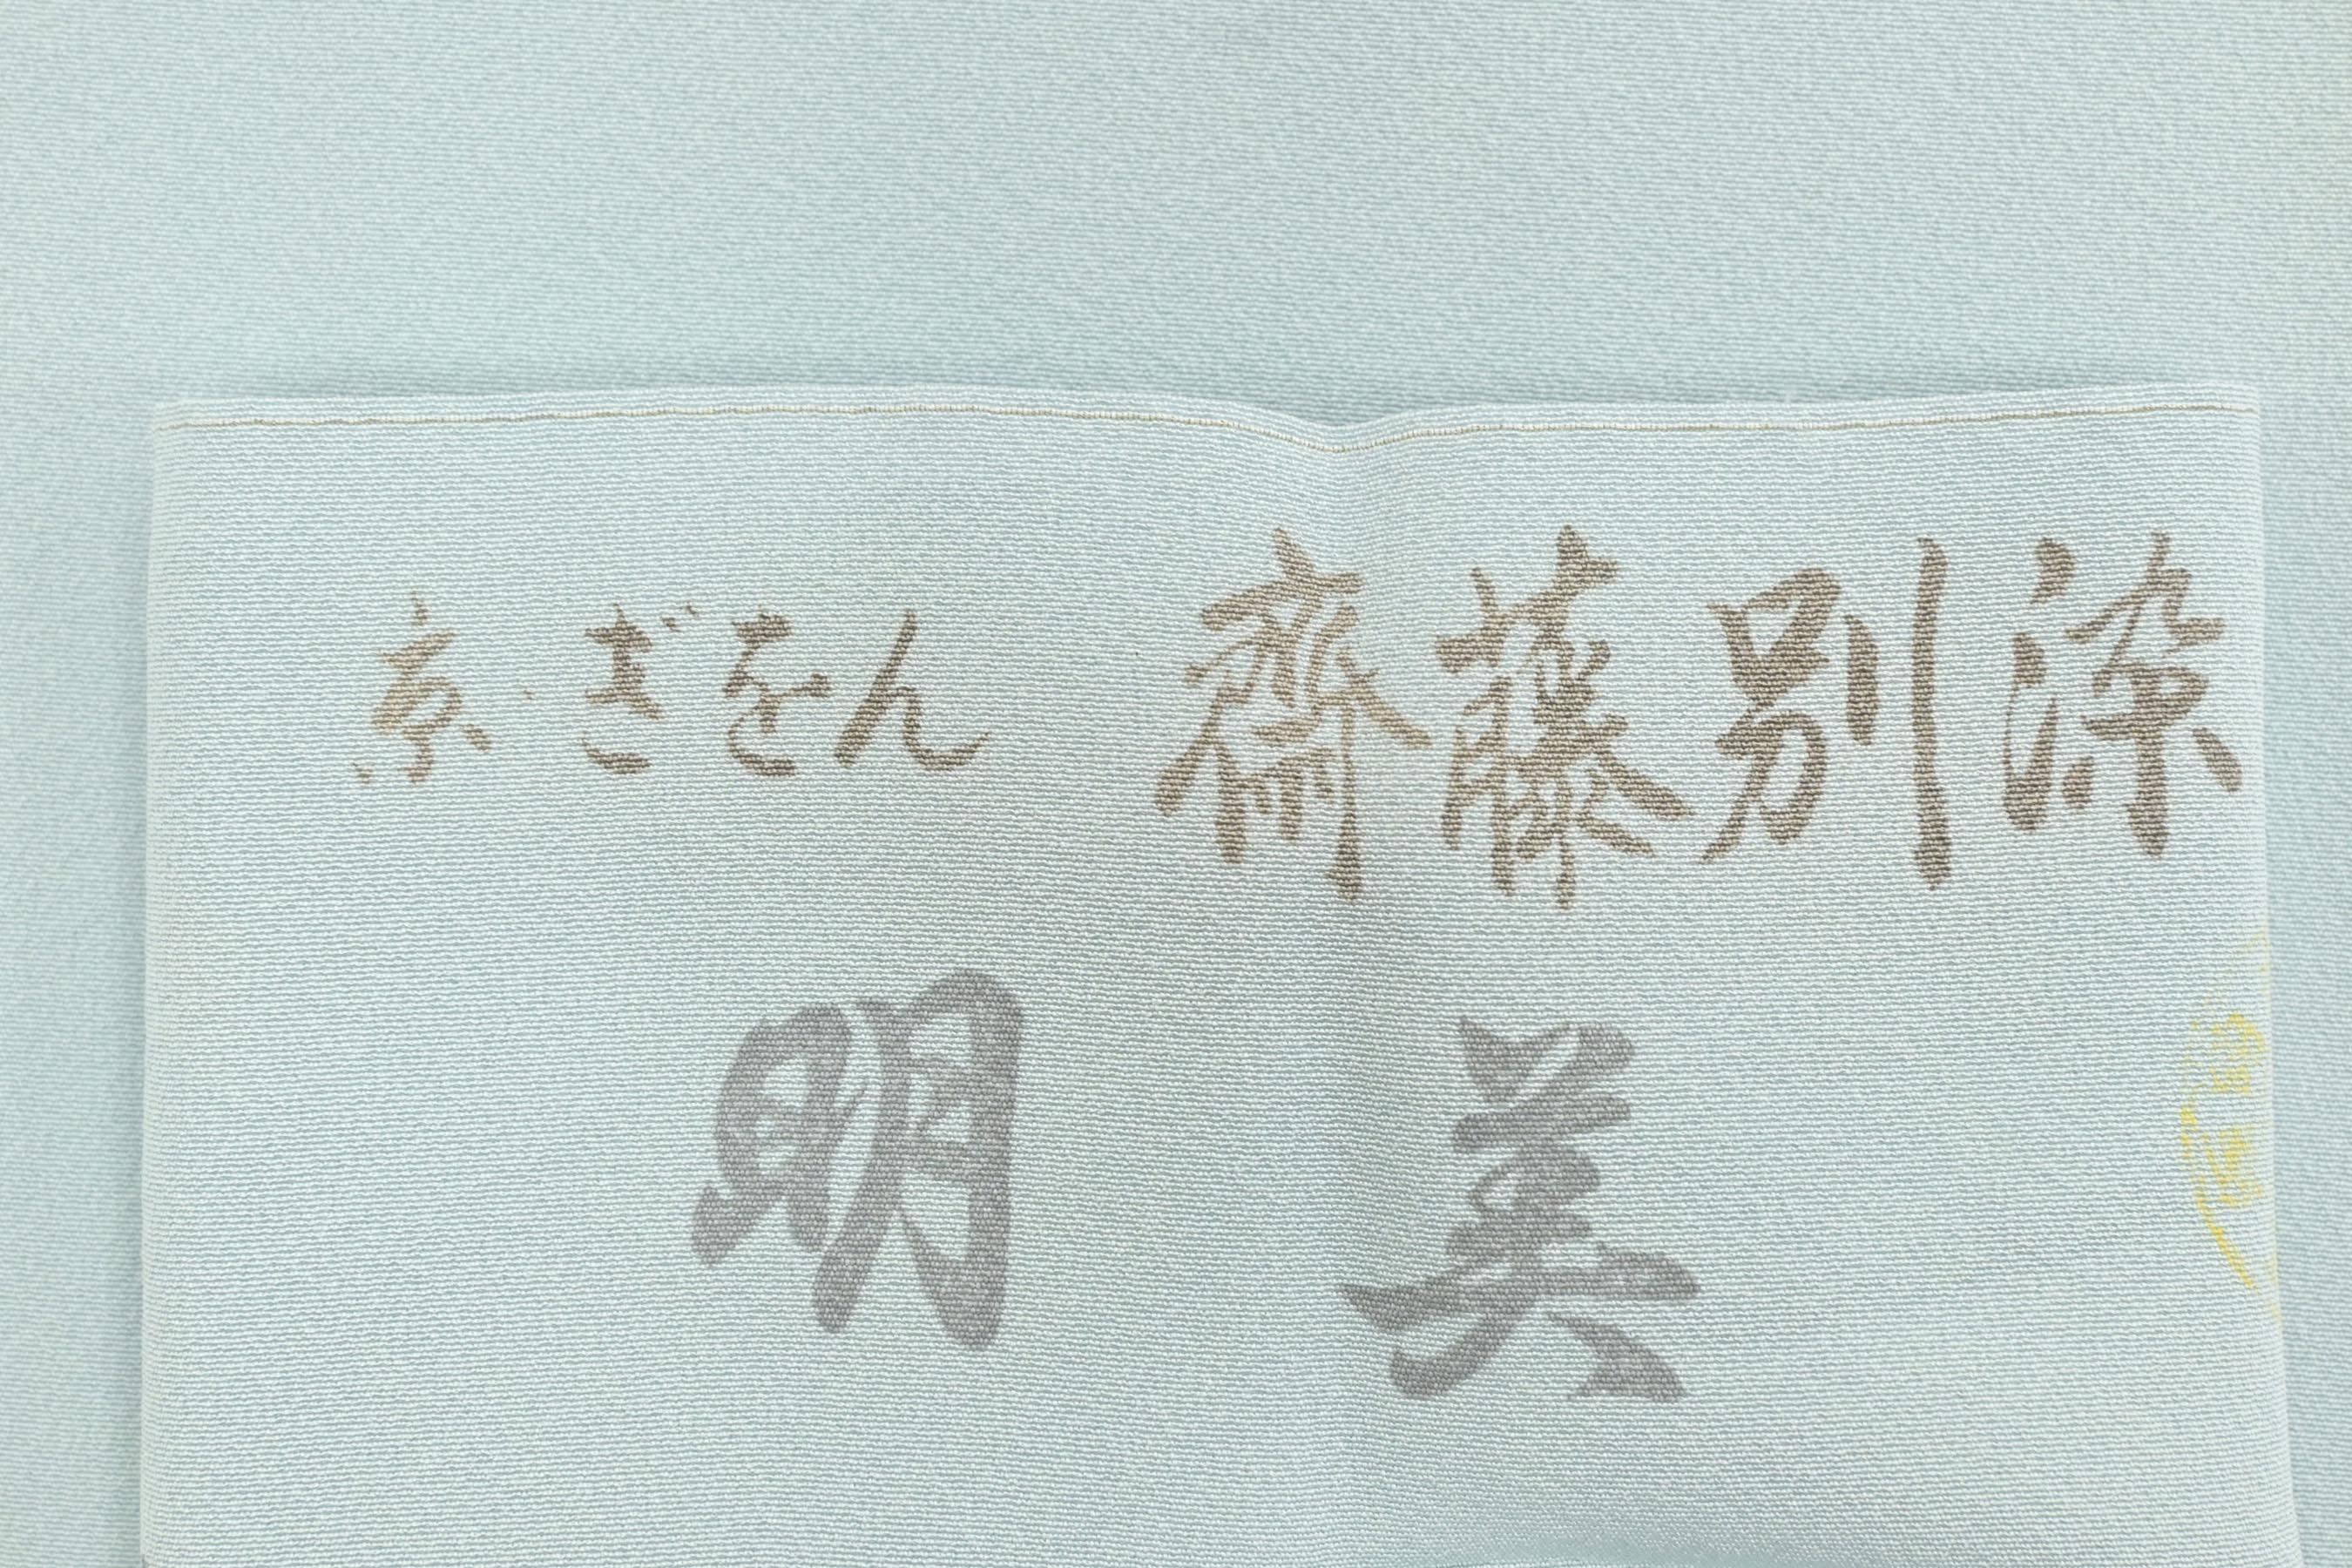 京・ぎをん 齋藤別染
明美